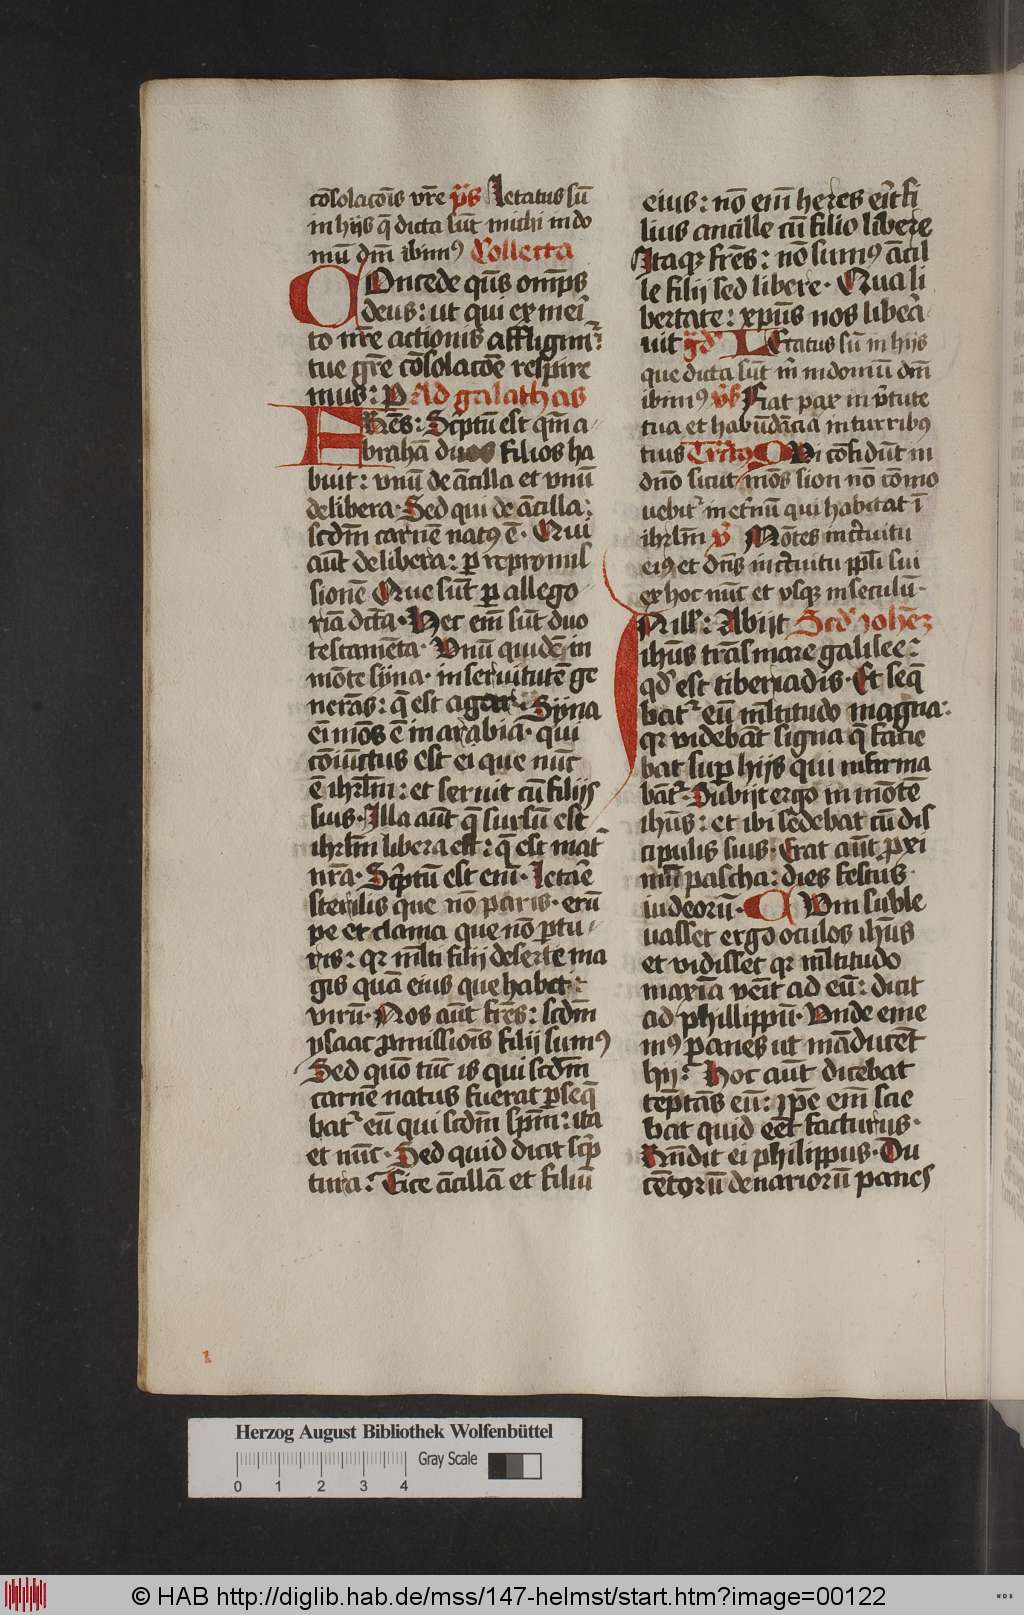 cōsolacōis vr̄e p̄s Letatus sū
in hijs q̄ dicta sūt michi in do
mū dm̄ ibimꝰ Collecta
COncede qūs om̄ps
deus: ut qui ex mei͛
to nr̄e actionis affligim͛:
tue gr̄e cōsolacōe respire
mus: P Ad galathas
FRēs: Scptū est qm̄ a
brahā duos filios ha
buit: vnū de ācilla et vnū
de libera. Sed qui de ācilla:
scdm̄ carnē natꝰ ē. Qui
aūt de libera: ꝑ repromis
sionē Que sūt ꝑ allego
riā dcta. Hec em̄ sūt duo
testamēta. Vnū quidē in
mōte syna. in seruitutē ge
nerās: q̄ est agar. Syna
em̄ mōs ē in arabia. qui
cōiūctus est ei que nūc
ē ihrl̄m: et seruit cū filijs
suis. Illa aūt q̄ sursū est
ihrl̄m libera est: q̄ est mat͛
nr̄a. Scptū est enī. Letare
sterilis que nō paris. erū
pe et clama que nō ꝑtu
ris: qꝛ ml̄ti filij deserte ma
gis quā eius que habet
virū. Nos aūt fr̄es: scdm̄
ysaac ꝓmissiōis filij sumꝰ
Sed quō tūc is qui scdm̄
carnē natus fuerat ꝑseq̄
bat͛ eū qui scdm̄ spm̄: ita
et nūc. Sed quid dicit scp
tura: Eice ācillā et filiū
eius: nō em̄ heres erit fi
lius ancille cū filio libere
Itaqꝫ fr̄es: nō sumꝰ ācil
le filij sed libere. Qua li
bertate: xpūs nos libera
uit gͬd LEtatus sū in hijs
que dicta sūt m̄ in domū dm̄
ibimꝰ vͤs Fiat pax in v͛tute
tua et habūdācia in turribꝰ
tuis Trctꝰ QVi cōfidūt in
dn̄o sicut mōs sion nō cōmo
uebit͛ in et͛nū qui habitat ī
ihrl̄m v̄ Mōtes in c͛cuitu
eiꝰ et dn̄s in c͛cuitu ppl̄i sui
ex hoc nūc et vsqꝫ in seculū.
IN ill: Abijt Scd͛ iohēꝫ
ihūs trās mare galilee:
qd̄ est tiberiadis. Et seq̄
bat͛ eū ml̄titudo magna:
qꝛ videbāt signa q̄ facie
bat suꝑ hijs qui infirma
bāt͛. Subijt ergo in mōtē
ihūs: et ibi sedebat cū dis
cipulis suis. Erat aūt ꝓxi
mū pascha: dies festus
iudeorū. CVm suble
uasset ergo oculos ihūs
et vidisset qꝛ ml̄titudo
maxīa venit ad eū: dicit
ad phillippū. Vnde eme
mꝰ panes ut māducēt
hij: Hoc aūt dicebat
tēptās eū: ip̄e em̄ scie
bat quid eēt facturus.
Rn̄dit ei philippus. Du
cētorū denariorū panes
1
Herzog August Bibliothek Wolfenbüttel
Gray Scale
0 1 2 3 4
© HAB http://diglib.hab.de/mss/147-helmst/start.htm?image=00122